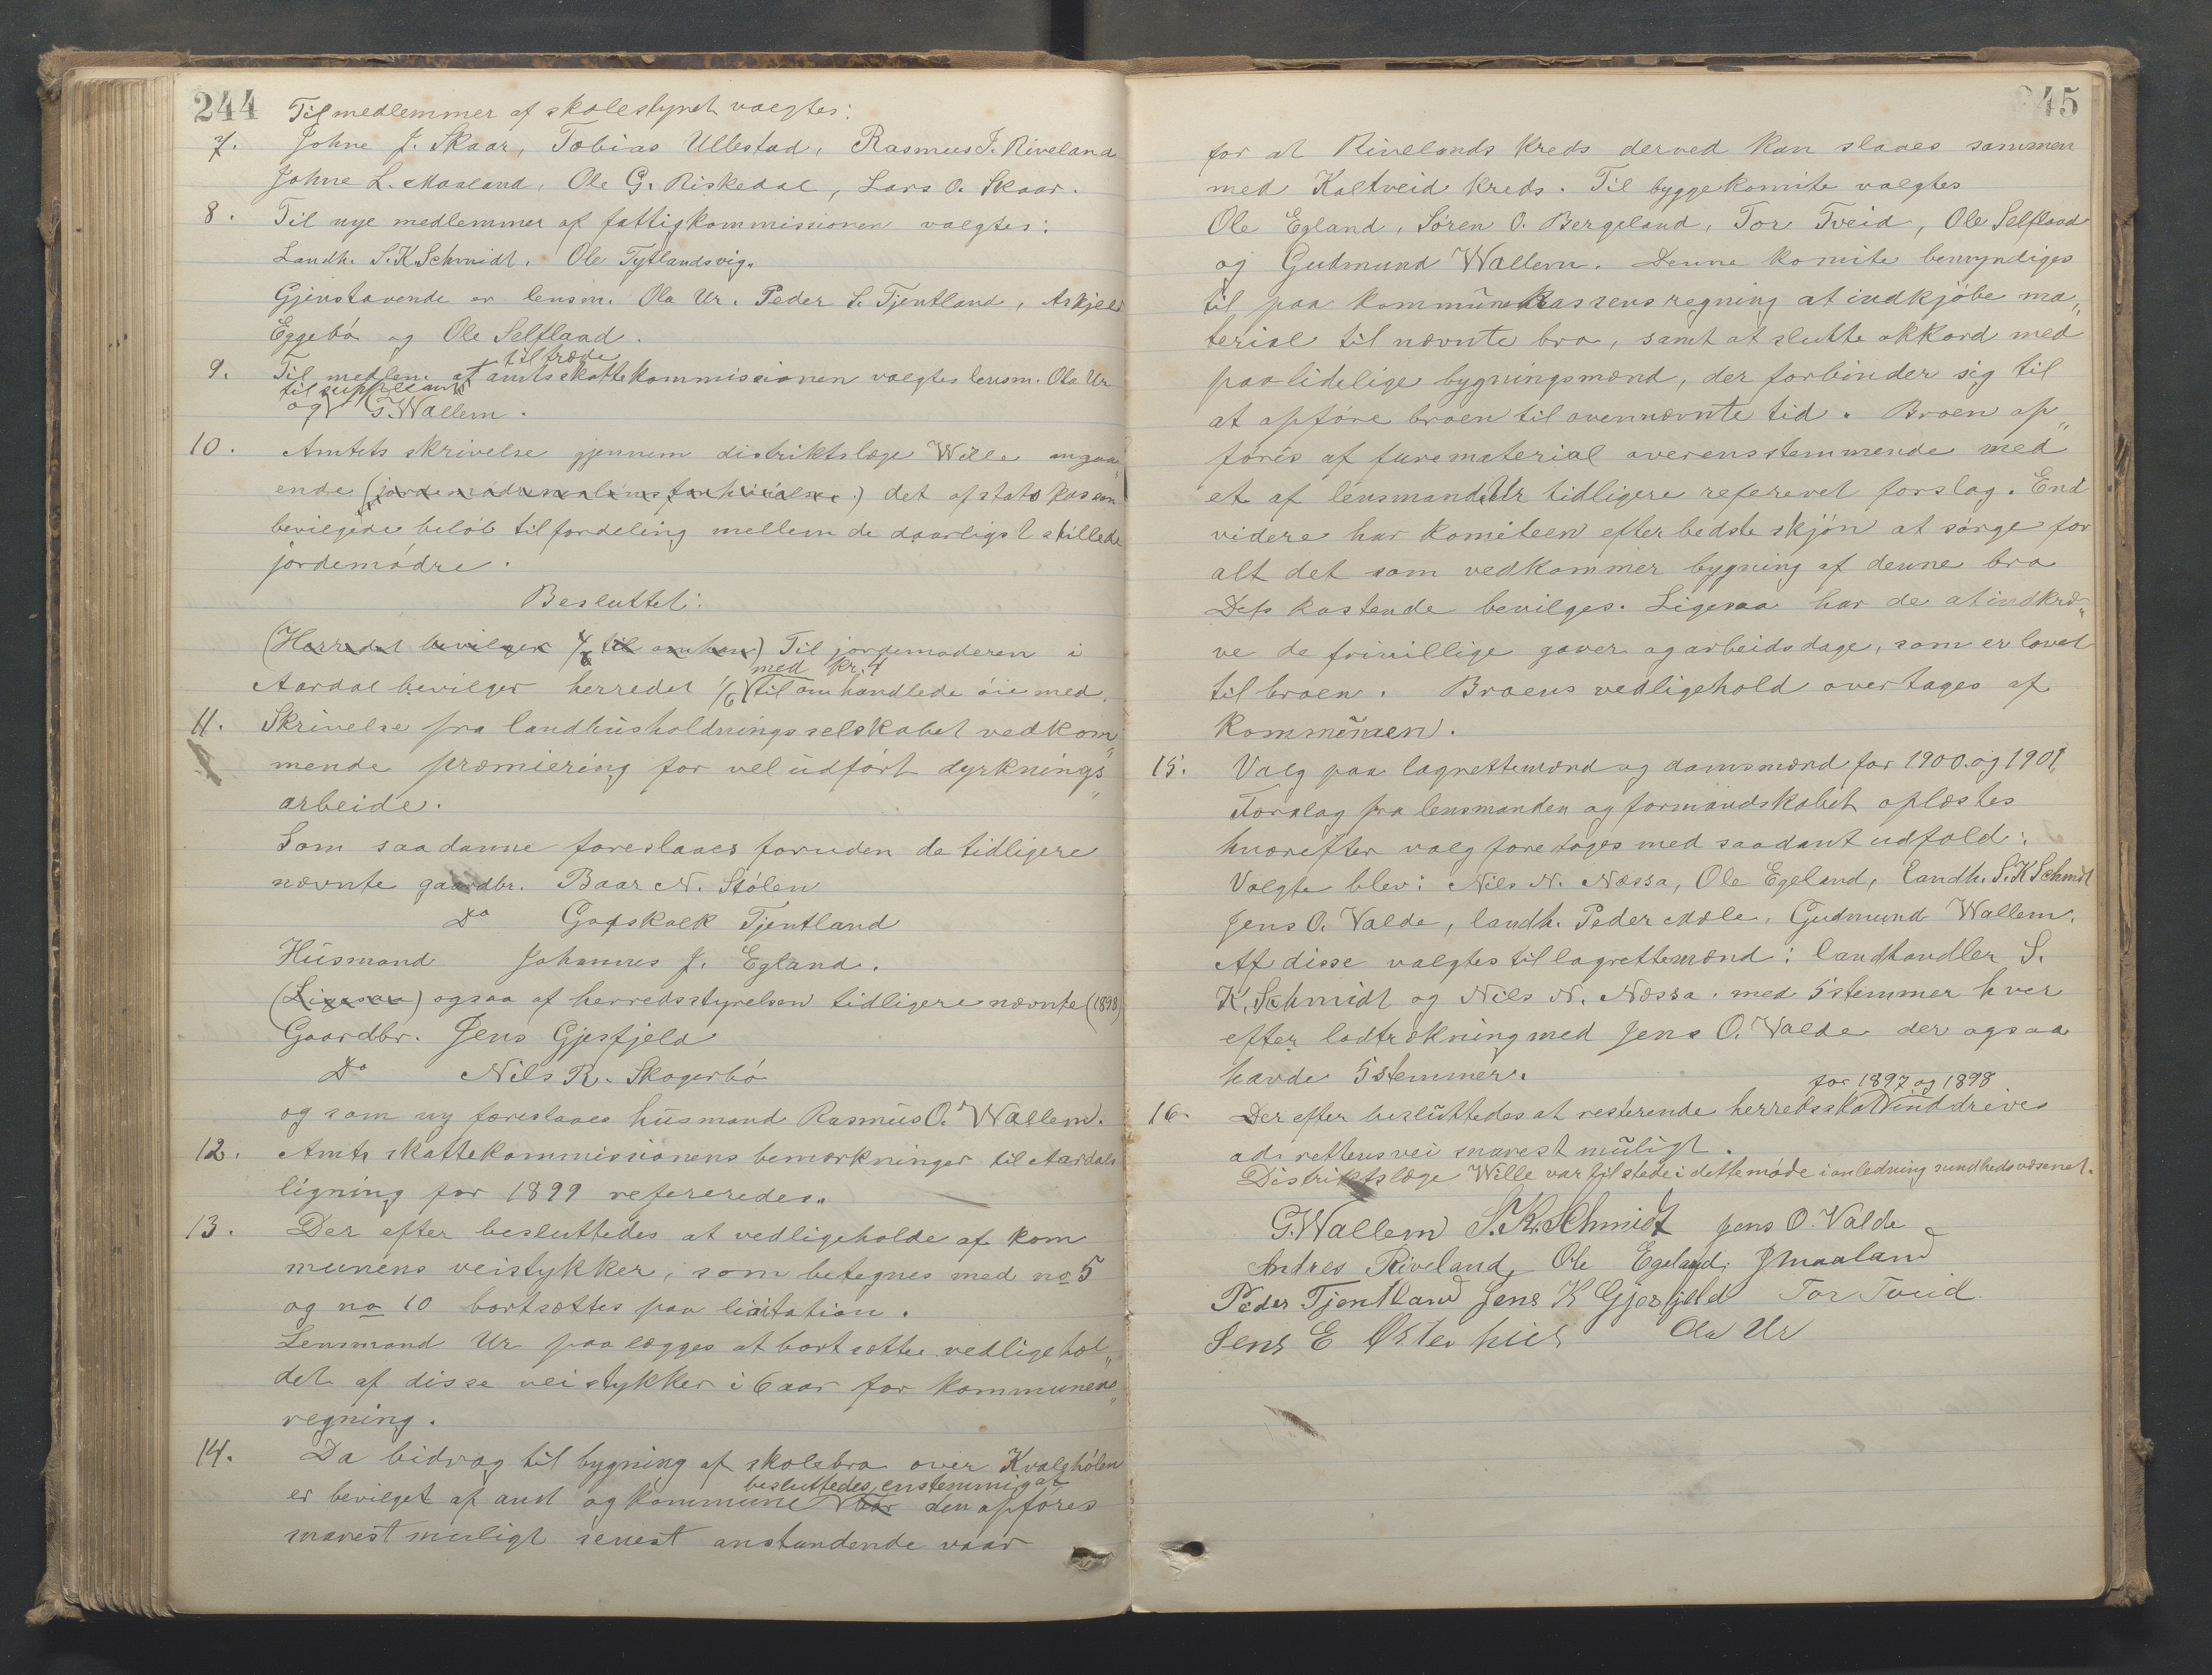 244
Til medlemmer af skolestyret valgtes:
7. Johne J. Skaar, Tobias Ullestad, Rasmus J. Riveland
Johne L. Maaland, Ole G. Riskedal, Lars O. Skaar.
8. Til nye medlemmer af fattigkommissionen valgtes:
Landh. S. K. Schmidt, Ole Tytlandsvig.
Gjenstaaende er lensm. Ola Ur. Peder S. Tjentland, Askjeld
Eggebö og Ole Selfland.
9. Til medlem af tiltræde amtsskattekommissionen valgtes lensm. Ola Ur
og til suppleant G. Wallem.
10. Amtets skrivelse gjennem distriktslæge Wille angaa
ende det af statskassen
bevilgede beløb til fordeling mellem de daarligst stillede
jordemødre.
Besluttet:
(Herredet bevilger til) Til jordemoderen i
Aardal bevilger herredet 1/6 med kr. 4 til omhandlede öiemed.
11. Skrivelse fra landhusholdningsselskabet vedkom„
mende præmiering for vel udført dyrknings„
arbeide.
Som saadanne foreslaaes foruden de tidligere
nævnte gaardbr. Baar N. Stölen
Do Gotskalk Tjentland
Husmand Johannes J. Egland.
(Ligesaa) ogsaa af herredsstyrelsen tidligere nævnte (1898)
Gaardbr. Jens Gjesfjeld
Do Nils R. Skogerbö
og som ny foreslaaes husmand Rasmus O. Wallem.
12. Amts skattekommissionens bemærkninger til Aardals
ligning for 1899 refereredes.
13. Der efter besluttedes at vedligeholde af kom
munens veistykker, som betegnes med no 5
og no 10 bortsættes paa licitation.
Lensmand Ur paalægges at bortsætte vedligehol„
det af disse veistykker i 6 aar for kommunens
regning.
14. Da bidrag til bygning af skolebro over Kvalshölen
er bevilget af amt og kommune besluttedes enstemmig at den opföres
snarest muligt senest anstundende vaar
245
for at Rivelands kreds derved kan slaaes sammen
med Kaltveid kreds. Til byggekomite valgtes
Ole Egland, Sören O. Bergeland, Tor Tveid, Ole Selfland
og Gudmund Wallem. Denne komite bemyndiges
til paa kommunekassens regning at indkjöbe ma„
terial til nævnte bro, samt at slutte akkord med
paalidelige bygningsmænd, der forbinder sig til
at opføre broen til ovennævnte tid. Broen op„
föres af furematerial overensstemmende med
et af lensmand Ur tidligere refereret forslag. End
videre har komiteen efter bedste skjön at sörge for
alt det som vedkommer bygning af denne bro
Dets kostende bevilges. Ligesaa har de at indkræ„
ve de frivillige gaver og arbeidsdage, som er lovet
til broen. Broens vedligehold overtages af
kommunen.
15. Valg paa lagrettemænd og domsmænd for 1900 og 1901,
Forslag fra lensmanden og formandskabet oplæstes
hvorefter valg foretoges med saadant udfald:
Valgte blev: Nils N. Næssa, Ole Egeland, Landh. S. K Schmidt
Jens O. Valde, landh. Peder Mæle, Gudmund Wallem.
Af disse valgtes til lagrettemænd: landhandler S.
K. Schmidt og Nils N. Næssa. med 5 stemmer hver
efter lodtrækning med Jens O. Valde der ogsaa
havde 5 stemmer.
16. Der efter besluttedes at resterende herredsskat for 1897 og 1898 inddrives
ad rettens vei snarest muligt.
Distriktslæge Wille var til stede i dette møde i anledning sundhedsvæsenet.
G. Wallem S. K. Schmidt Jens O. Valde
Andres Riveland, Ole Egeland, J Maaland
Peder Tjentland Jens K Gjesfjeld Tor Tveid
Jens E Østerhus Ola Ur